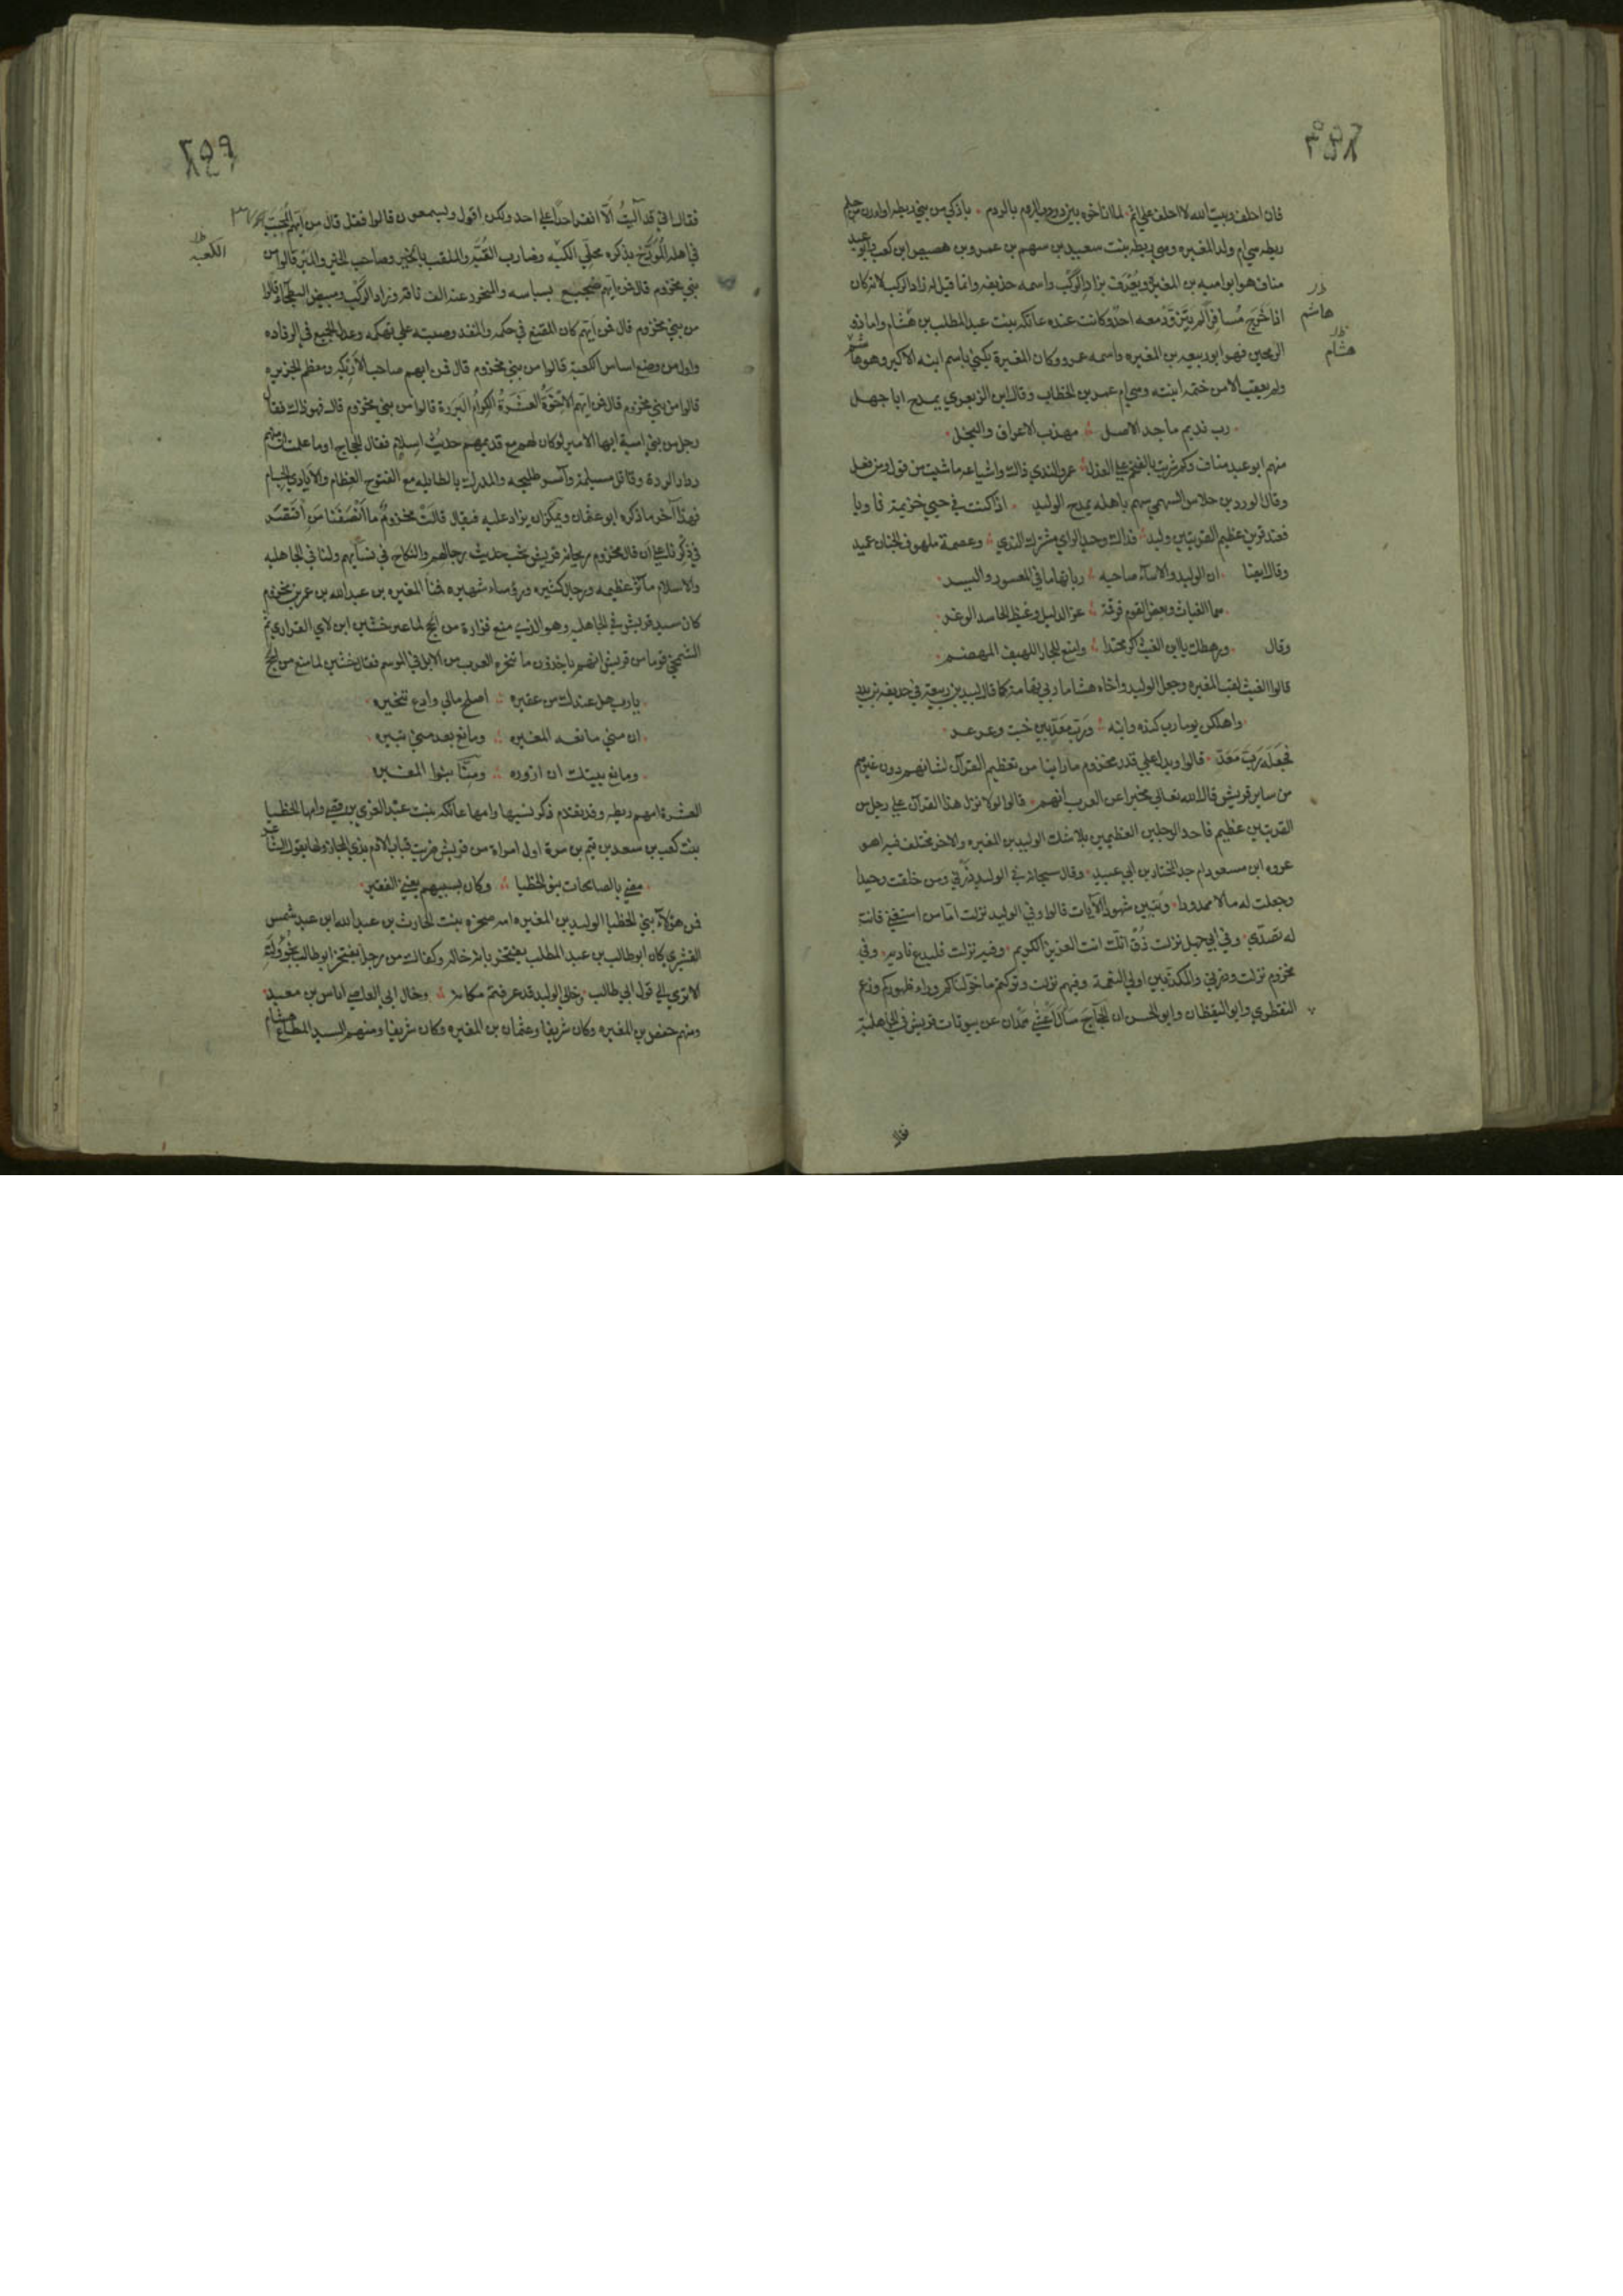 فان احلف وبيت الله لا احلف على اثم
ريطه هي ام ولد المغيره وهي ريطه بنت سعيد بن سهم بن عمرو بن هصيص ابن كعب وابو عبد
مناف هو ابو اميه بن المغيرة ويعرف بزاد الركب واسمه حذيفه وانما قيل له زاد الركب لانه كان
اذا خرج مسافرا لم يتزود معه احد وكانت عنده عاتكه بنت عبد المطلب بن هشام واما ذو
هاشم
الرمحين فهو ابو ربيعه بن المغيره واسمه عمرو وكان المغيرة يكنى باسم ابنه الاكبر وهو هاشم
هشام
ولم يعقب الا من حنتمه ابنته وهي ام عمر بن الخطاب وقال ابن الزبعري يمدح ابا جهل
رب نديم ماجد الاصل مهذب الاعراق والنجل
منهم ابو عبد مناف وكم
وقال الورد بن خلاس السهمي سهم باهله يمدح الوليد اذا كنت في حيي خزيمة ثاويا
فعند قرين عظيم القريتين وليد فذاك وحيد الراي مشترك الندي وعصمة ملهوف الجنان عميد
وقال ايضا ان الوليد
وقال ورهطك يا ابن الغيث اكرم محتدا وامنع للجار اللهيف المهضم
قالوا الغيث لقب المغيره وجعل الوليد واخاه هشاما ربي تهامة كما قال لبيد بن ربيعة في حذيفه بن بدر
واهلكن يوما رب كنده وابنه ورب معد بين خبت وعرعر
فجعله رب معد قالوا ويدل على قدر مخزوم ما راينا من تعظيم القرآن لشانهم دون غيرهم
من ساير قريش قال الله تعالى مخبرا عن العرب انهم قالوا لولا نزل هذا القرآن على رجل من
القريتين عظيم فاحد الرجلين العظيمين بلا شك الوليد بن المغيره والاخر مختلف فيه اهو
عروه ابن مسعود ام جد المختار بن ابي عبيد وقال سبحانه في الوليد ذرني ومن خلقت وحيدا
وجعلت له مالا ممدودا وبنين شهودا الآيات قالوا وفي الوليد نزلت اما من استغني فانت
له تصدي وفي ابي جهل نزلت ذق انك انت العزيز الكريم وفيه نزلت فليدع ناديه وفي
مخزوم نزلت وذرني والمكذبين اولي النعمة وفيهم نزلت وتركتم ما خولناكم وراء ظهوركم وزعم
اليقطري وابو اليقظان وابو الحسن ان الحجاج سال اعشي همدان عن بيوتات قريش في الجاهلية
فقال
فقال اني قد آليت الا انفر احدا على احد ولكن اقول ويسمعون قالوا فقل قال من ايهم المحبب
في اهله المورخ بذكره محلي الكعبه وضارب القبه والملقب بالخير وصاحب الخير والمير قالوا من
الكعبه
بني مخزوم قال فمن ايهم ضجيع بسباسه والمنحور عنه الف ناقة وزاد الركب ومبيض البطحاء قالوا
من بني مخزوم قال فمن ايهم كان المقنع في حكمه والمنفذ وصيته على تهكمه وعدل الجميع في الرفاده
واول من وضع اساس الكعبة قالوا من بني مخزوم قال فمن ايهم صاحب الاريكه ومطعم الخزيره
قالوا من بني مخزوم قال فمن ايهم الاخوة العشرة الكرام البررة قالوا من بني مخزوم قال فهو ذاك فقال
رجل من بني امية ايها الامير لو كان لهم مع قديمهم حديث اسلام فقال الحجاج اوما علمت ان منهم
رداد الردة وقاتل مسيلمة وآسر طليحه والمدرك بالطايله مع الفتوح العظام والايادي الجسام
فهذا آخر ما ذكره ابو عثمان ويمكن ان يزاد عليه فيقال قالت مخزوم ما انصفنا من اقتصر
في ذكرنا على ان قال مخزوم ريحانة قريش تحب حديث رجالهم والنكاح في نسائهم ولنا في الجاهليه
والاسلام مآثر عظيمه ورجال كثيره ورؤساء شهيره فمنا المغيره بن عبد الله بن عمر بن مخزوم
كان سيد قريش في الجاهليه وهو الذي منع فزارة من الحج لما عير خشين ابن لاي الفزاري ثم
الشمخي قوما من قريش انهم ياخذون ما ينحره العرب من الابل في الموسم فقال خشين لما منع من الحج
يارب هل عندك من عقيره اصلح مالي وادع تنحيره
ان مني مانعه المغيره ومانع بعد مني ثبيره
ومانع بيتك ان ازوره ومنا بنوا المغيره
العشرة امهم ريطه وقد تقدم ذكر نسبها وامها عاتكه بنت عبد العزي بن قصي وامها الخظيا
بنت كعب بن سعد بن تيم بن مرة اول امراة من قريش ضربت قباب الادم بذي المجاز ولها يقول الشاعر
مضي بالصالحات بنو الخظيا وكان بسيبهم يغني الفقير
فمن هؤلاء بني الخظيا الوليد بن المغيره امه صخره بنت الحارث بن عبد الله ابن عبد شمس
القشري كان ابو طالب بن عبد المطلب يفتخر بانه خاله وكفاك من رجل يفتخر ابو طالب بخؤولته
الا تري الى قول ابي طالب وخالي الوليد قد عرفتم مكانه وخال ابي العاصي اياس بن معبد
ومنهم حفص بن المغيره وكان شريفا وعثمان بن المغيره وكان شريفا ومنهم السيد المطاع هشام